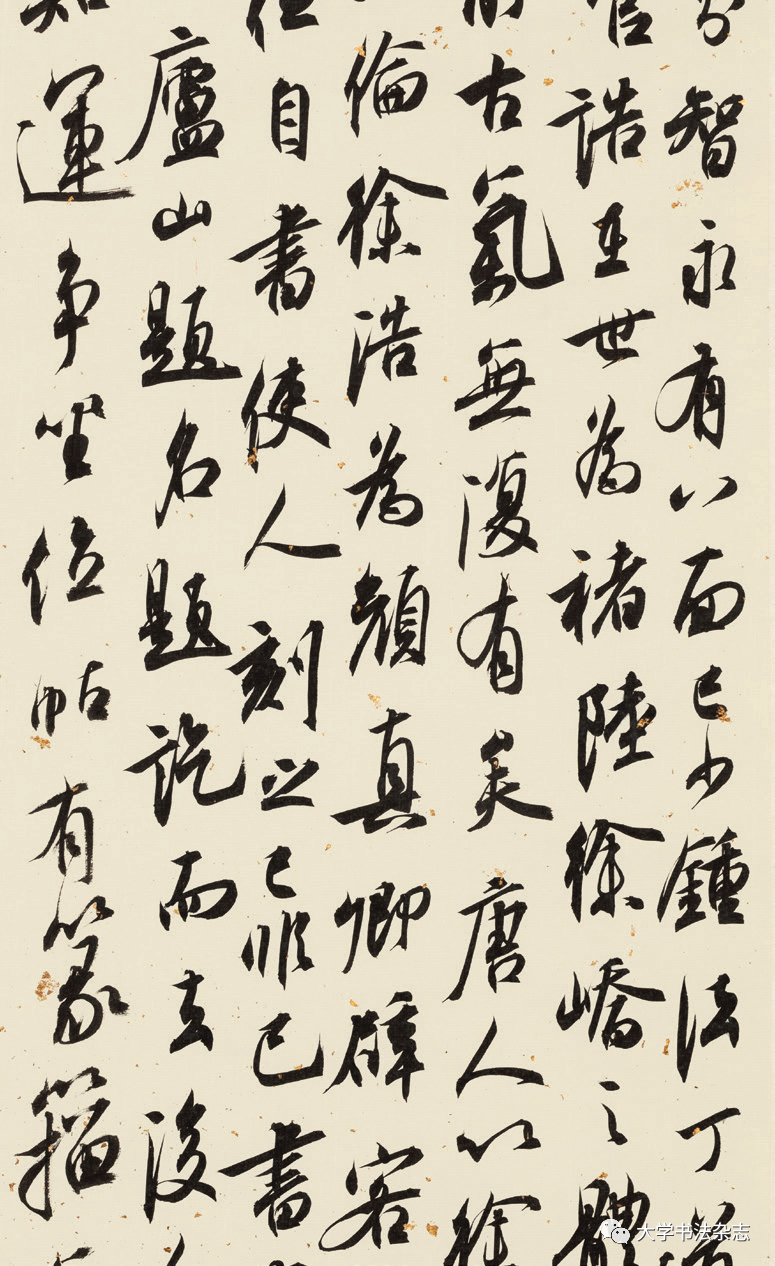 智永有八面已少鍾法丁道
官誥在世為褚陸徐嶠之體
前古氣無復有矣唐人以徐
倫徐浩為顏真卿辟客
自書使人刻之已非己書
廬山題名題訖而去後
運争坐位帖有篆籀
大学书法杂志